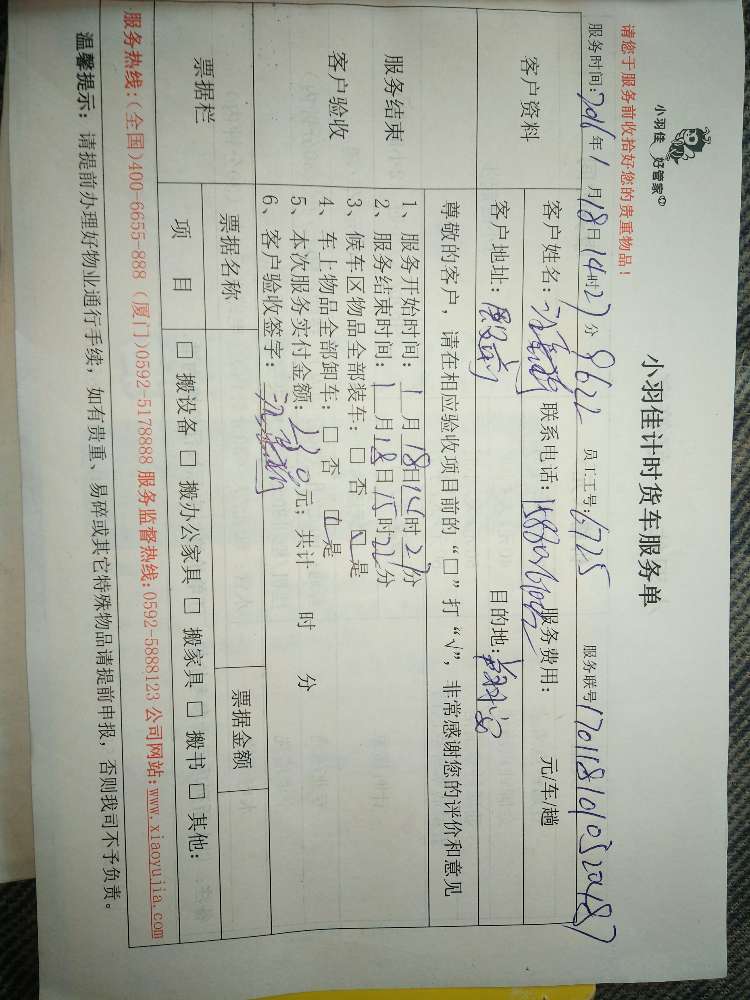 小羽佳 好管家
小羽佳计时货车服务单
请您于服务前收拾好您的贵重物品!
服务时间:2016年1月18日14时27分 9622 员工工号:6725 服务联号1701181010320487
客户资料
客户姓名: 联系电话: 服务费用: 元/车/趟
客户地址: 目的地:
服务结束
客户验收
尊敬的客户,请在相应验收项目前的“□”打“√”,非常感谢您的评价和意见
1、服务开始时间:1月18日14时27分
2、服务结束时间:1月18日15时22分
3、候车区物品全部装车:□ 否 □ 是
4、车上物品全部卸车:□ 否 □ 是
5、本次服务实付金额: 元;共计 时 分
6、客户验收签字:
票据栏
票据名称 票据金额
项 目 □ 搬设备 □ 搬办公家具 □ 搬家具 □ 搬书 □ 其他:
服务热线:(全国)400-6655-888 (厦门)0592-5178888 服务监督热线:0592-5888123 公司网站:www.xiaoyujia.com
温馨提示:请提前办理好物业通行手续,如有贵重、易碎或其它特殊物品请提前申报,否则我司不予负责。